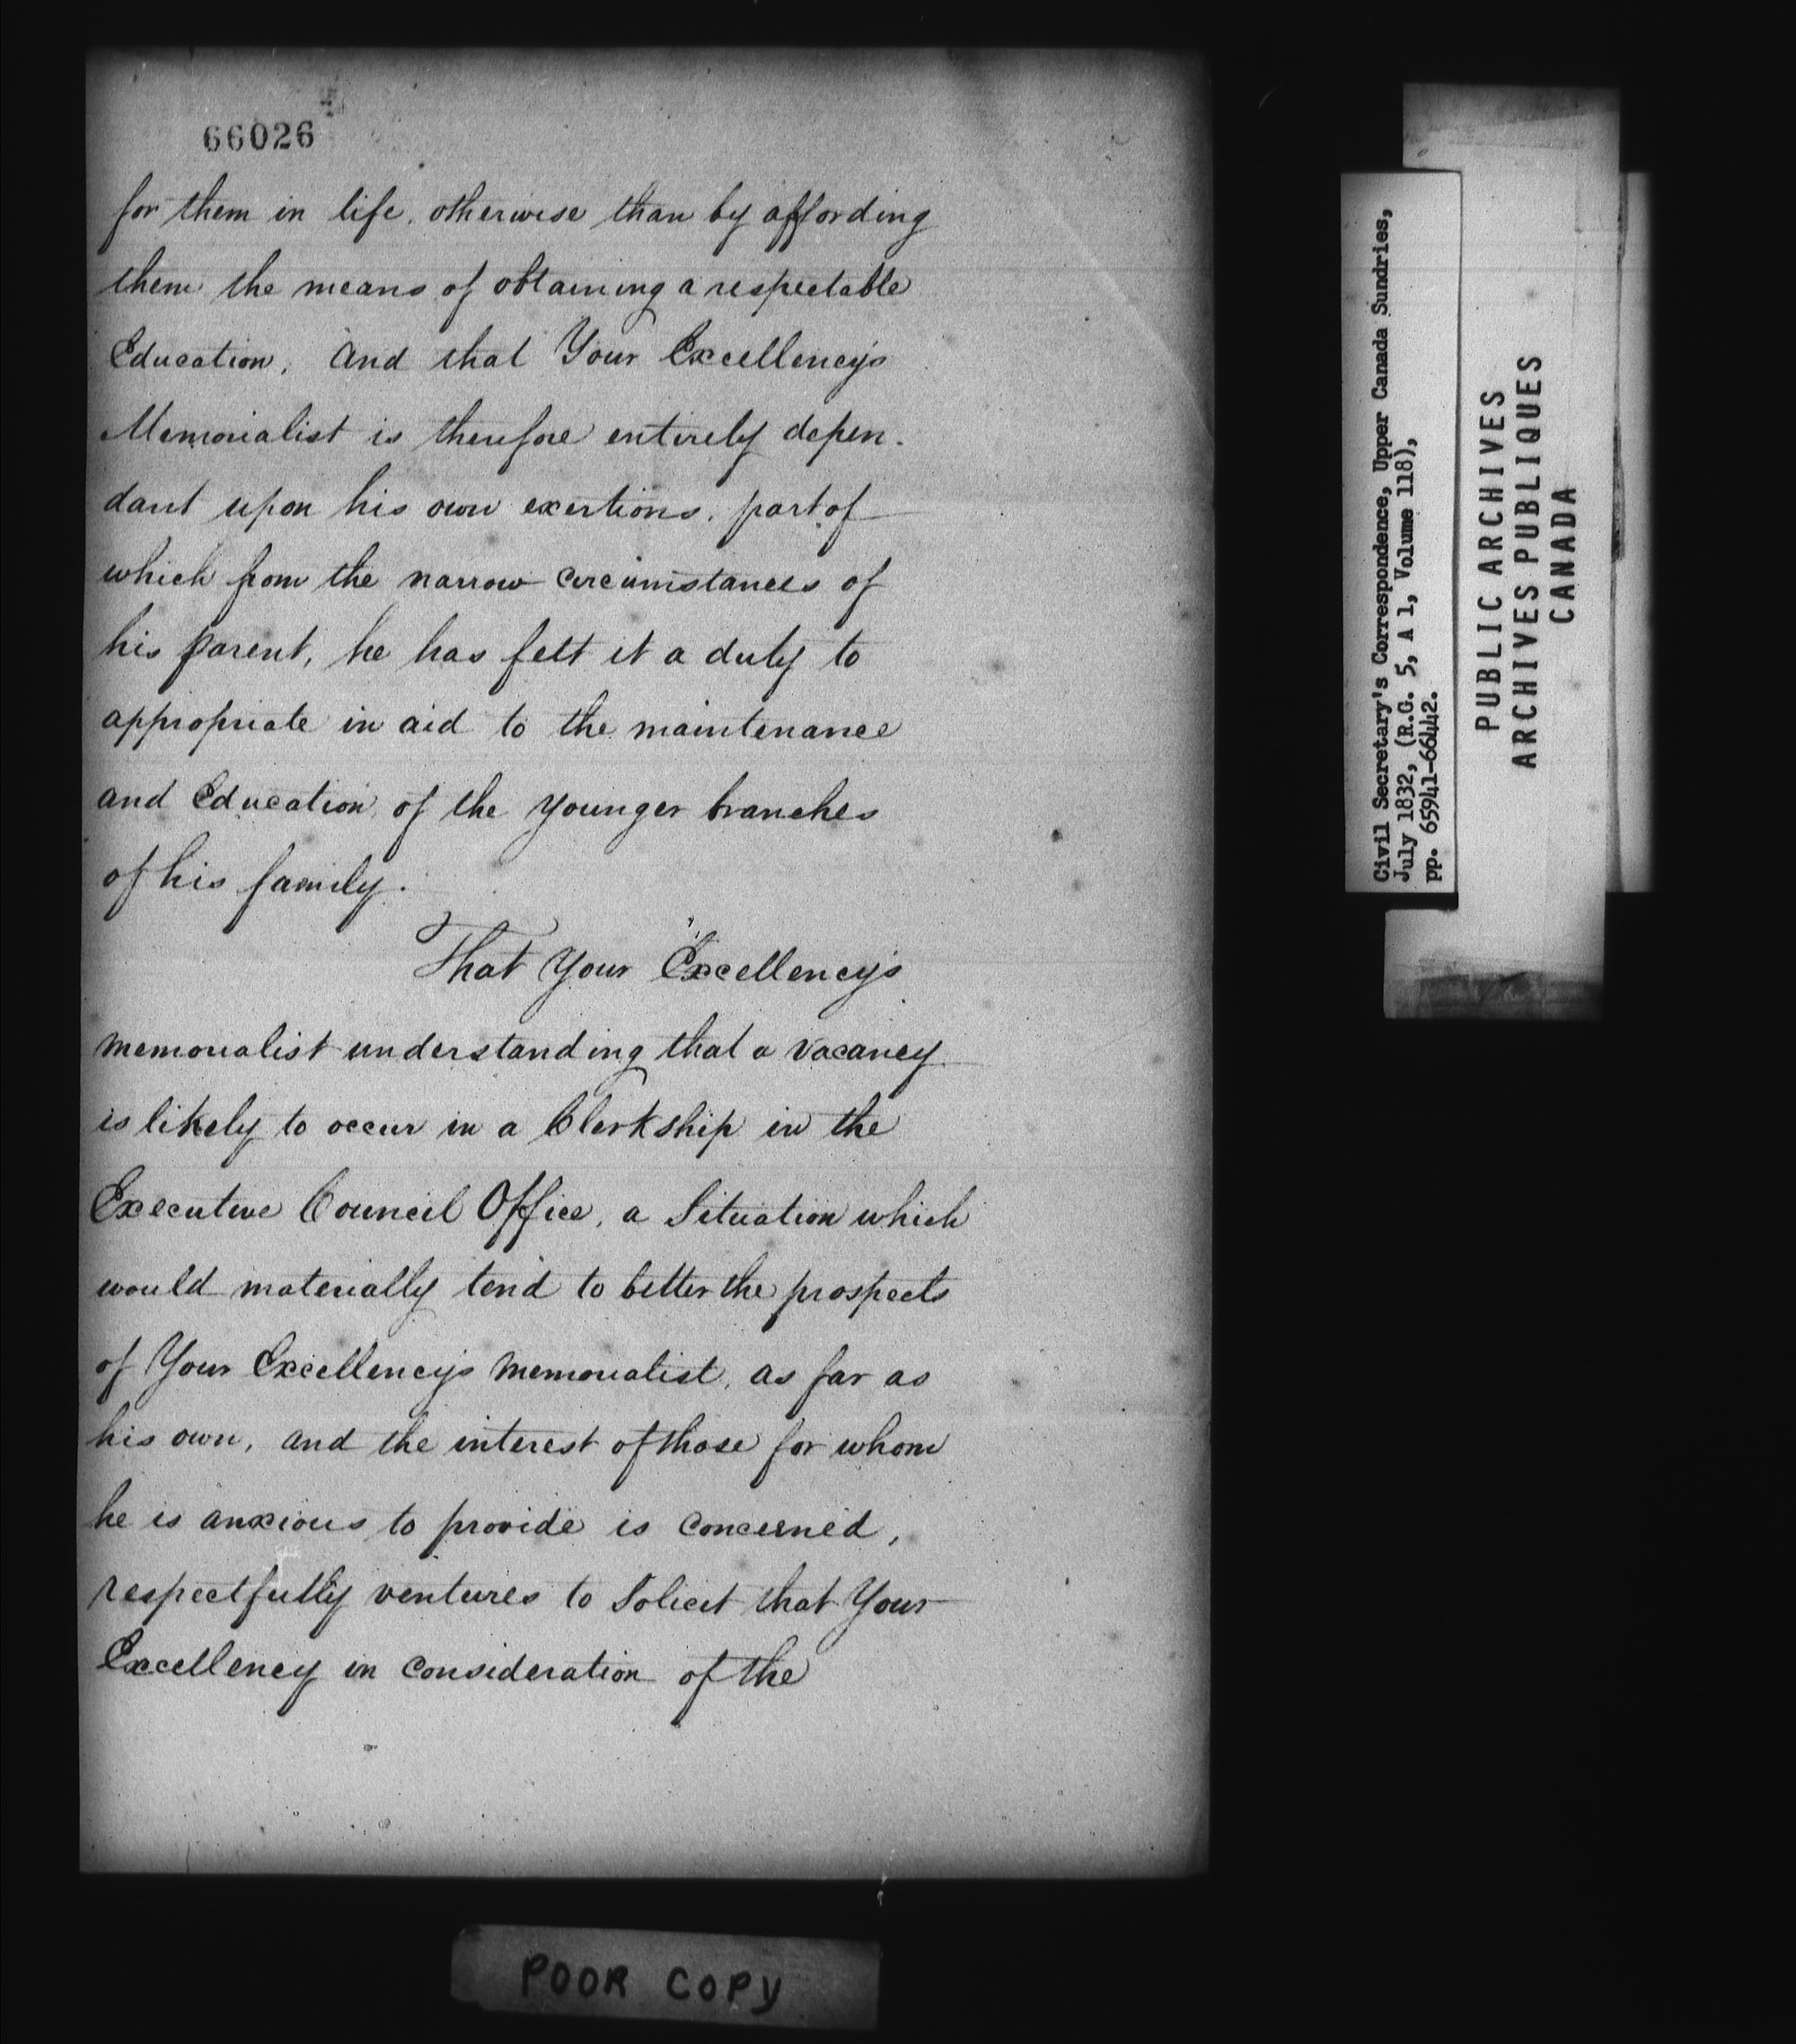 66026
for them in life, otherwise than by affording
them the means of obtaining a respectable
Education, And that Your Excellency's
Memorialist is therefore entirely depen-
dant upon his own exertions, part of
which from the narrow circumstances of
his parent, he has felt it a duty to
appropriate in aid to the maintenance
and Education of the younger branches
of his family.
That Your Excellency's
memorialist understanding that a vacancy
is likely to occur in a Clerkship in the
Executive Council Office, a Situation which
would materially tend to better the prospects
of Your Excellency's Memorialist, as far as
his own, and the interest of those for whom
he is anxious to provide is concerned,
respectfully ventures to Solicit that Your
Excellency in consideration of the
POOR COPY
Civil Secretary's Correspondence, Upper Canada Sundries,
July 1832, (R.G. 5, A 1, Volume 118),
pp. 65941-66442.
PUBLIC ARCHIVES
ARCHIVES PUBLIQUES
CANADA